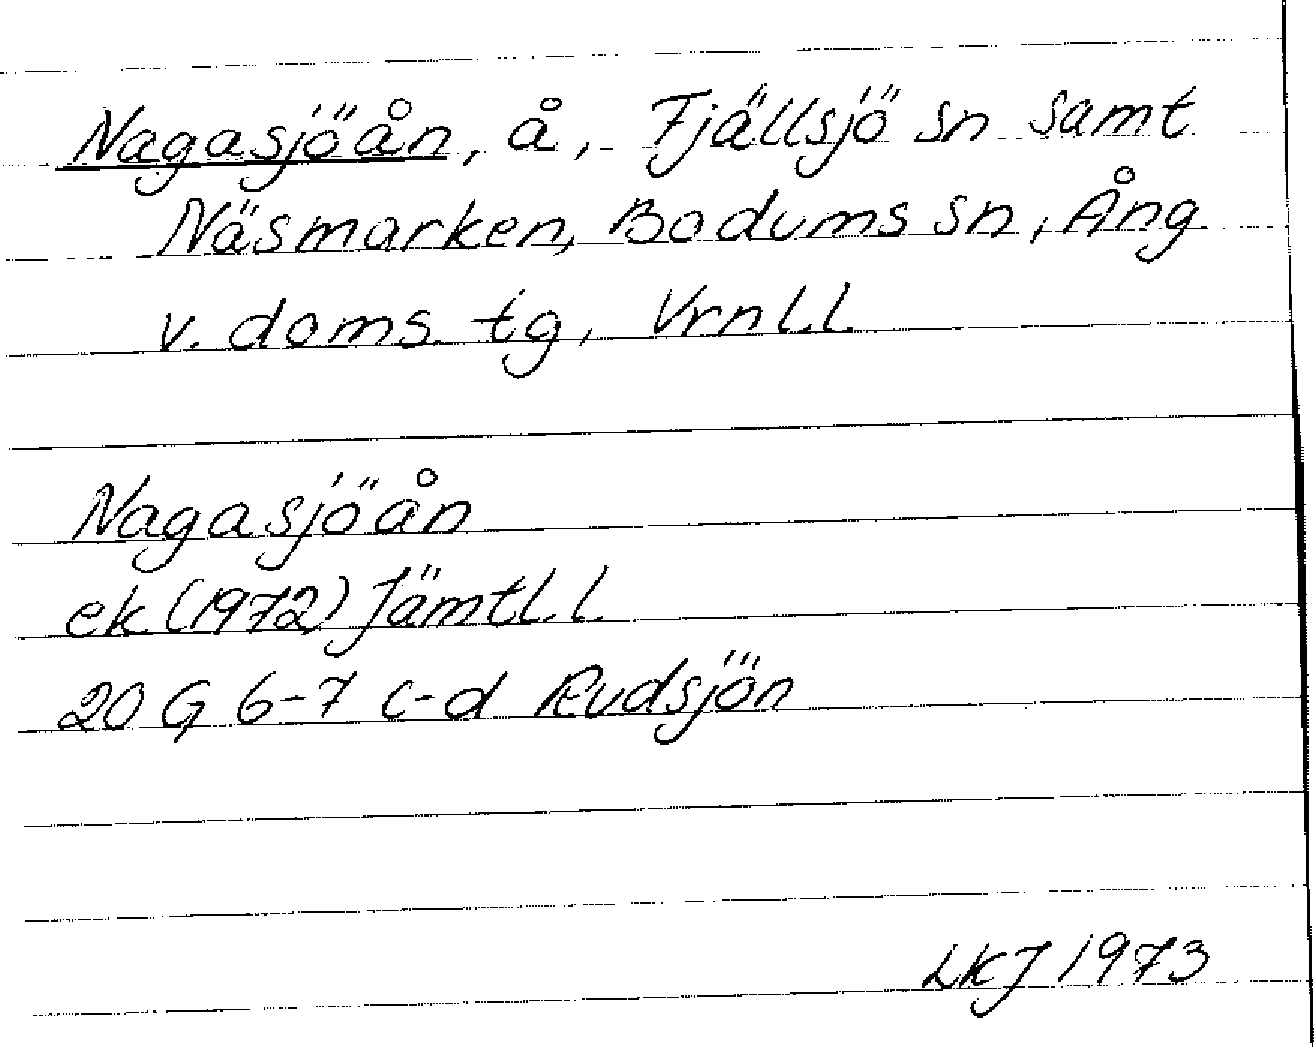 Nagasjöån, å, Fjällsjö sn samt
Näsmarken, Bodums sn, Ång
v. doms. tg, Vrnl l
Nagasjöån
ek (1972) Jämtl. l.
20 G 6-7 c-d Rudsjön
LKJ 1973